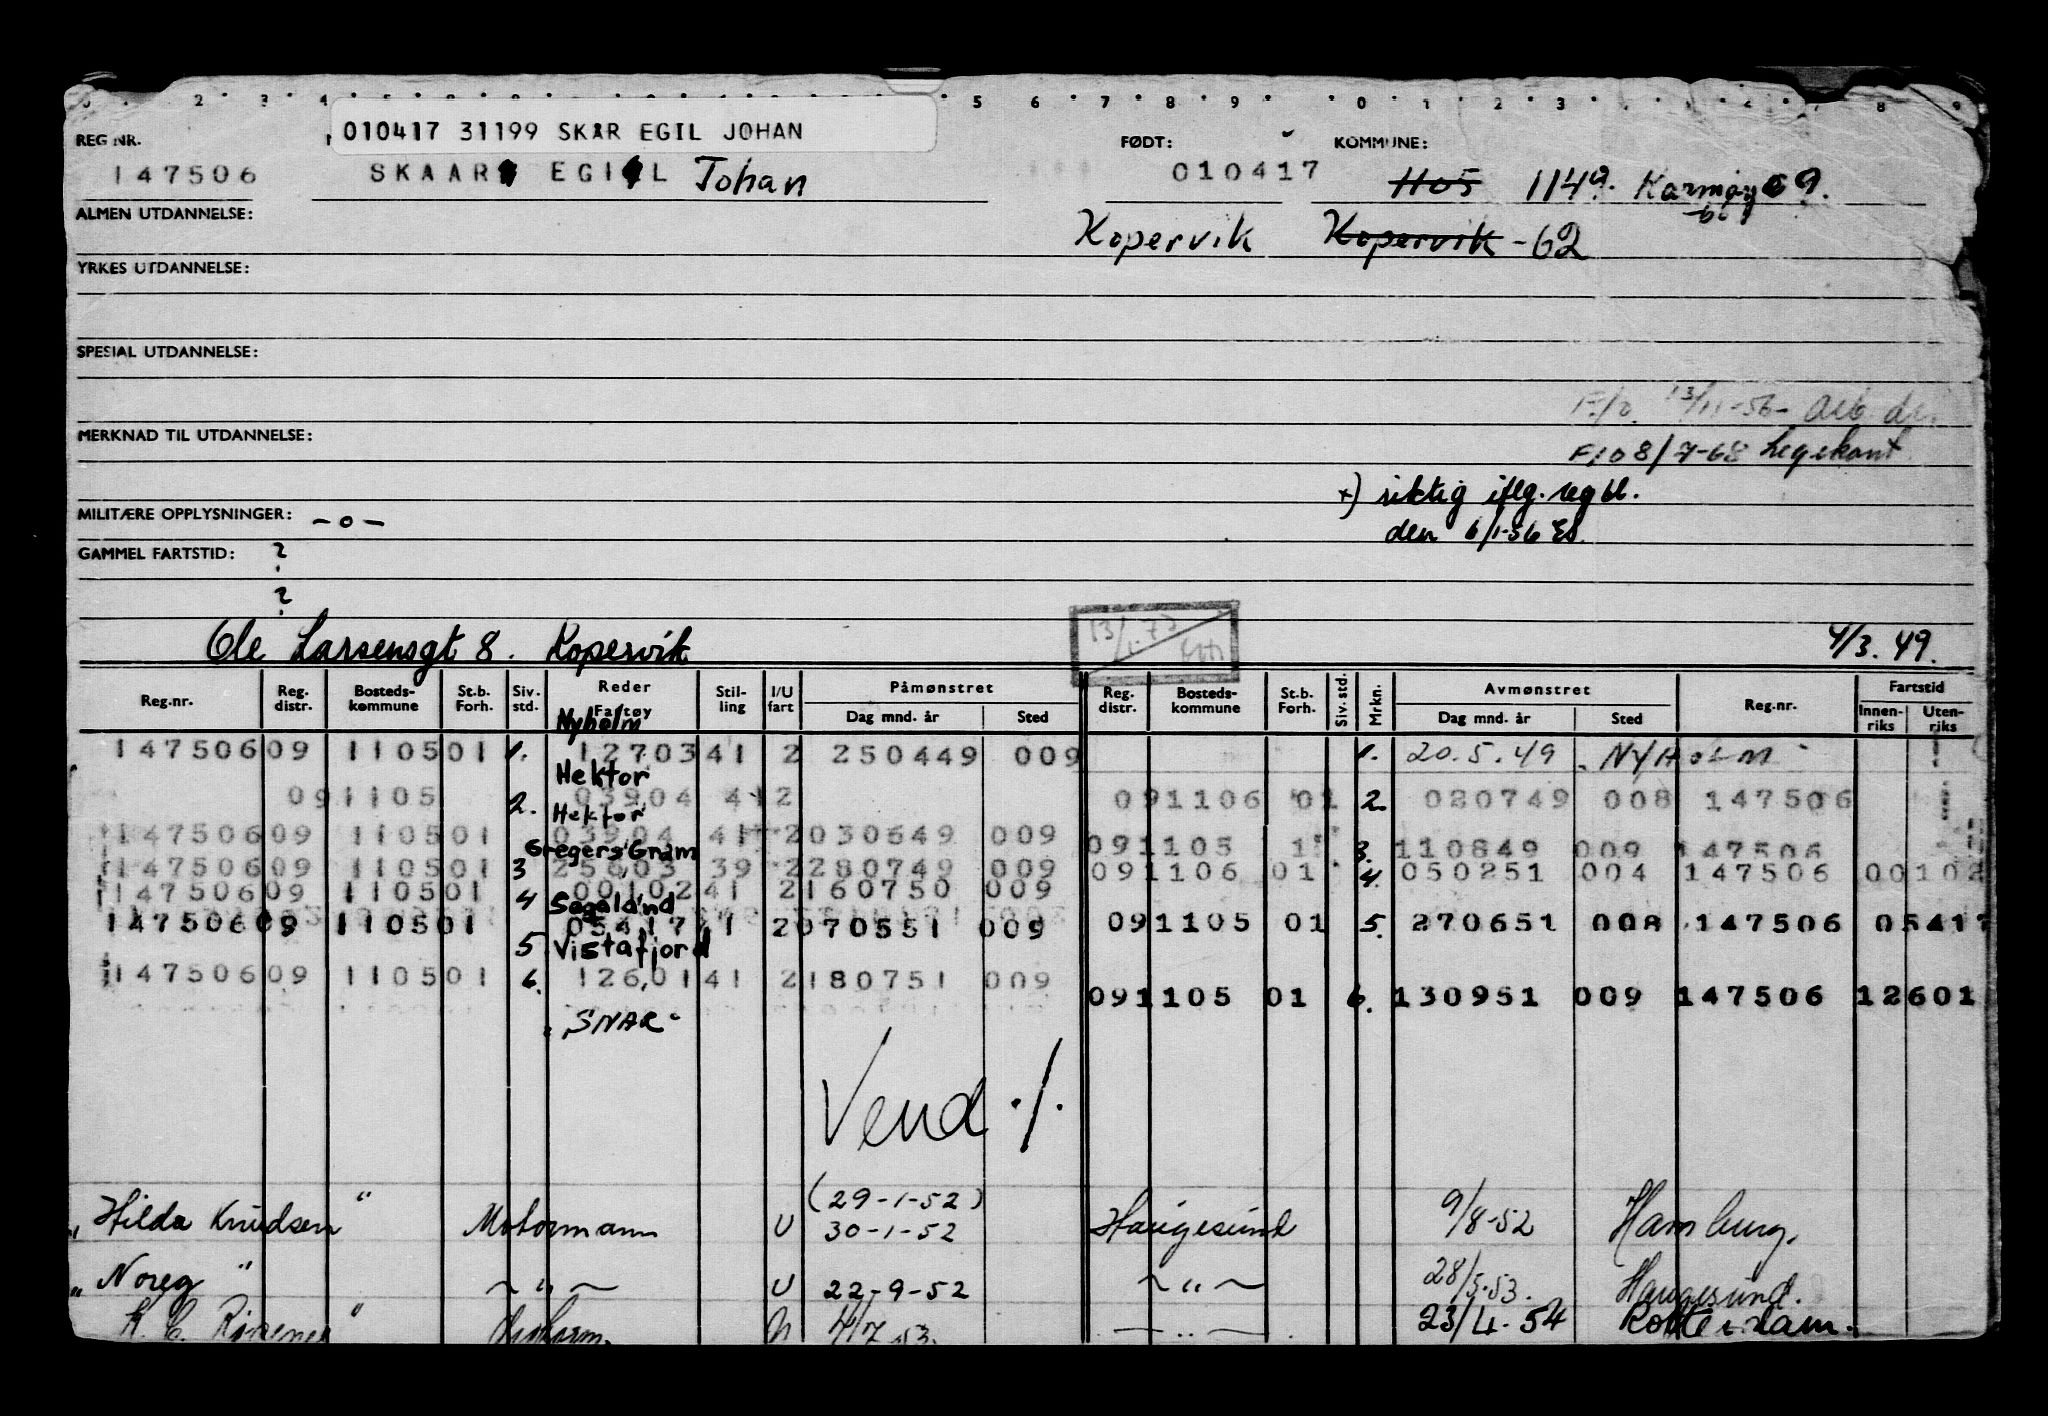 010417 31199 SKAR EGIL JOHAN
REG NR. FØDT: KOMMUNE:
147506 SKAAR EGIL Johan 010417 1105 1149. Karmøy 09.
ALMEN UTDANNELSE:
Kopervik Kopervik -62
YRKES UTDANNELSE:
SPESIAL UTDANNELSE:
F/o. 13/11-56-
MERKNAD TIL UTDANNELSE:
F/o 8/7-68 Legekont
+) riktig iflg. regbl.
MILITÆRE OPPLYSNINGER: -o-
den 6/1-56 Es.
GAMMEL FARTSTID: ?
?
Ole Larsensgt 8. Kopervik 4/3. 49.
Reg.nr. Reg. distr. Bosteds- kommune St.b. Forh. Siv. std. Reder Fartøy Stil- ling I/U fart Påmønstret Dag mnd. år Sted Reg. distr. Bosteds- kommune St.b. Forh. Siv. std. Mrkn. Avmønstret Dag mnd. år Sted Reg.nr. Fartstid Innen- riks Uten- riks
Nyholm
147506 09 1105 01 1. 12703 41 2 250449 009 1. 20.5.49 "NYHOLM"
Hektor
09 1105 2. 03904 41 2 09 1106 01 2. 020749 008 147506
Hektor
147506 09 1105 01 03904 41 2 030649 009 09 1105 3. 110849 009 147506
Gregers Gram
147506 09 1105 01 3 25003 39 2 280749 009 09 1106 01 4. 050251 004 147506 00102
147506 09 1105 01 4 00102 41 2 160750 009
Segeland
147506 09 1105 01 05417 41 2 070551 009 09 1105 01 5. 270651 008 147506 05417
5. Vistafjord
147506 09 1105 01 6. 12601 41 2 180751 009
09 1105 01 6. 130951 009 147506 12601
"SNAR"
Vend ./.
(29-1-52)
"Hilda Knudsen" Motormann U 30-1-52 Haugesund 9/8-52 Hamburg.
"Noreg" ~ " ~ U 22-9-52 ~ " ~ 28/5-53. Haugesund.
4/7 53. — " — 23/4-54 Rotterdam.